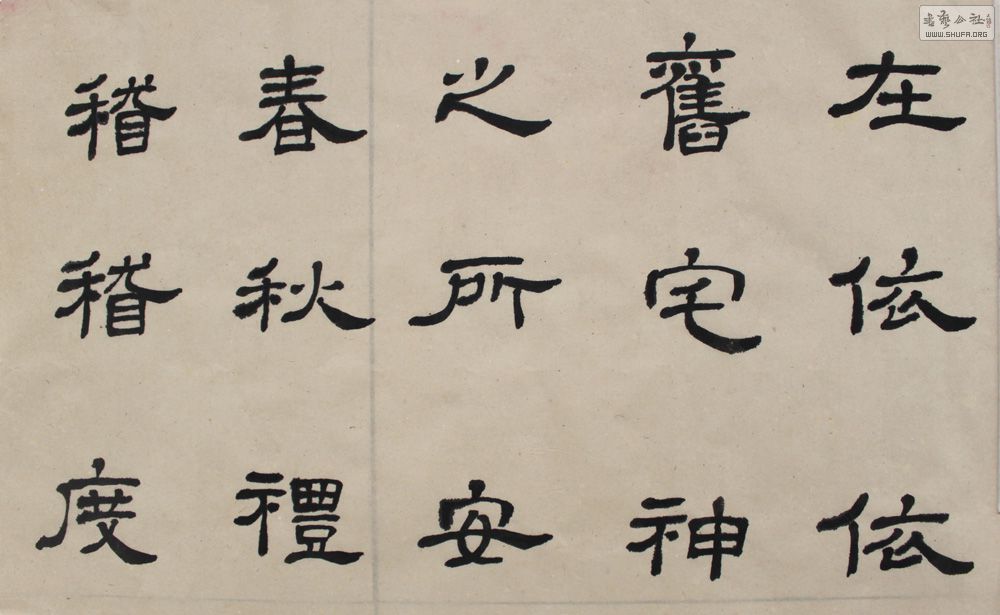 在依依
舊宅神
之所安
春秋禮
稽稽度
書藝公社
WWW.SHUFA.ORG